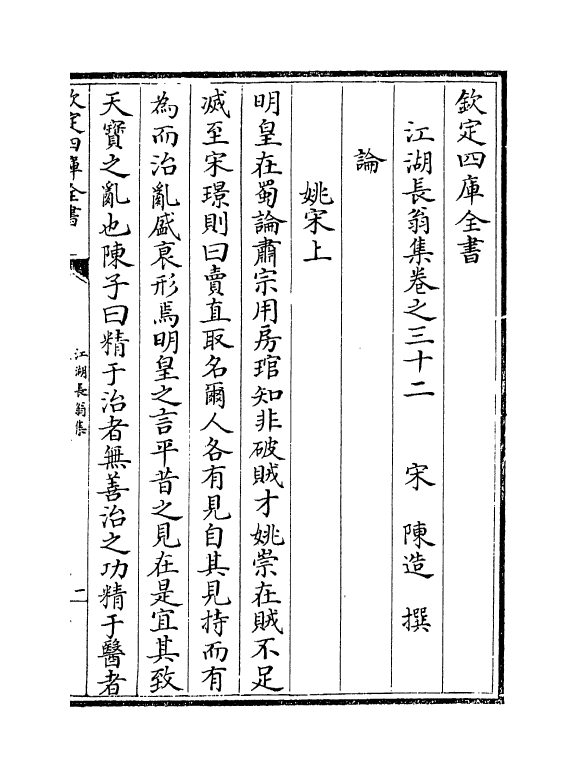 欽定四庫全書
江湖長翁集卷之三十二 宋 陳造 撰
論
姚宋上
明皇在蜀論肅宗用房琯知非破賊才姚崇在賊不足
滅至宋璟則曰賣直取名爾人各有見自其見持而有
為而治亂盛衰形焉明皇之言平昔之見在是宜其致
天寶之亂也陳子曰精于治者無善治之功精于醫者
欽定四庫全書
江湖長翁集